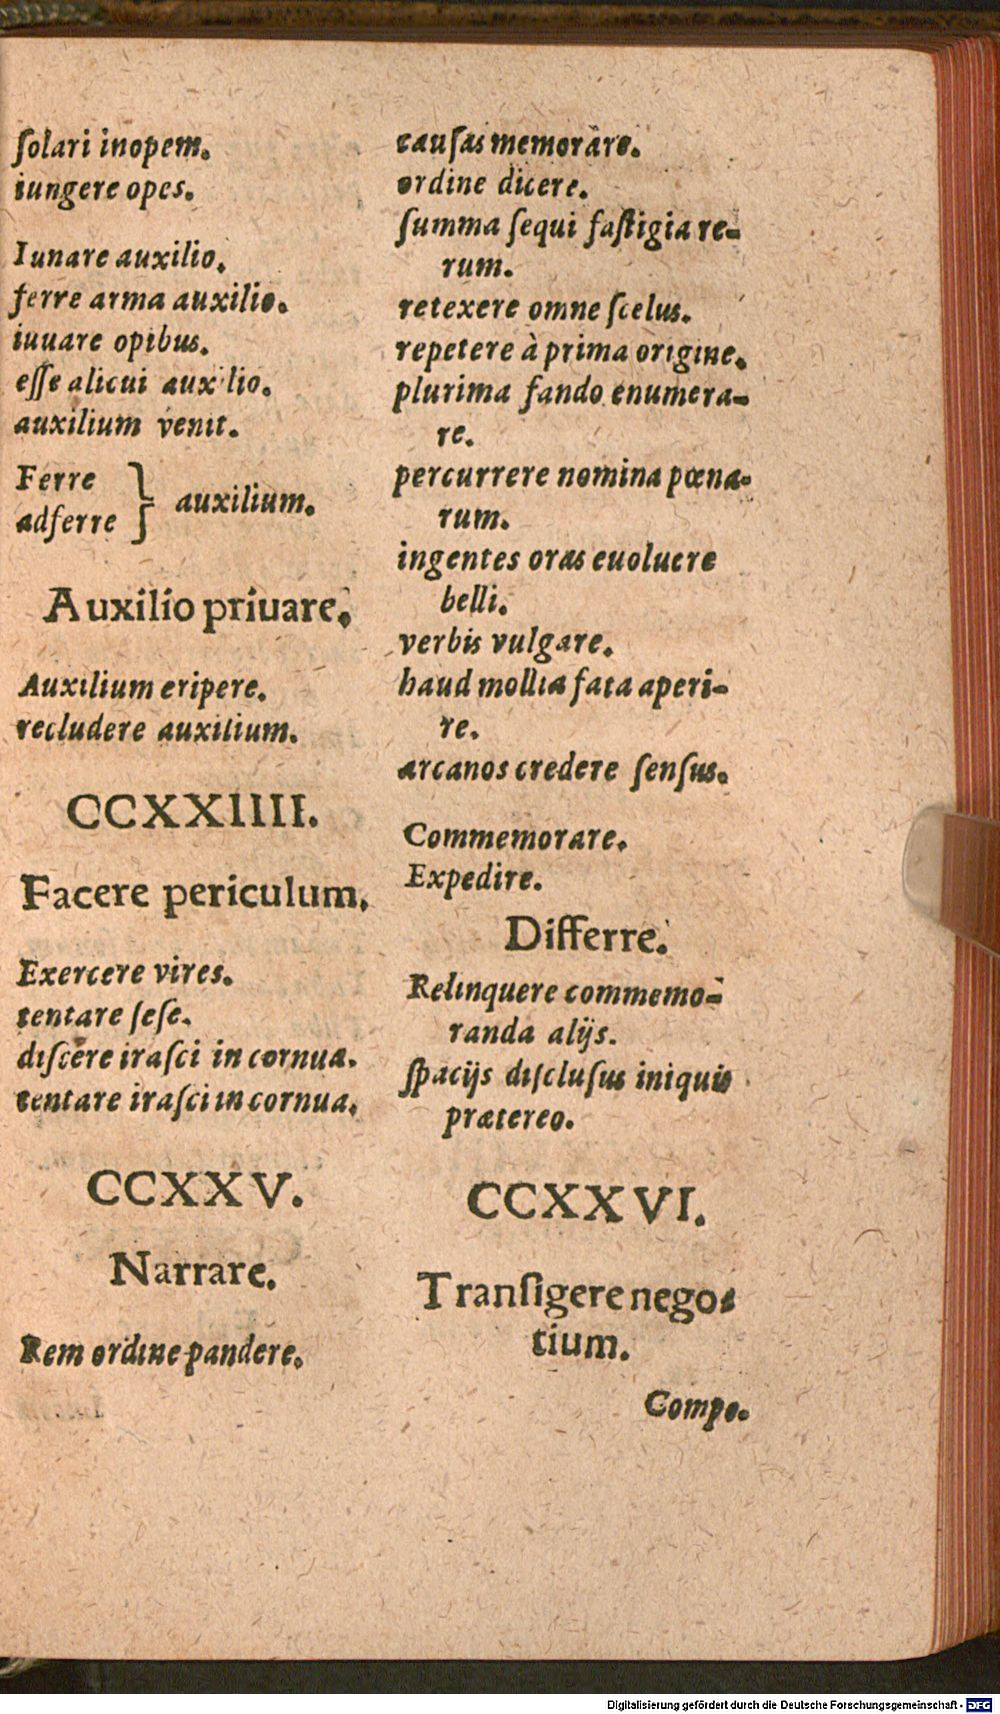 ſolari inopem.
iungere opes.
Iunare auxilio.
ferre arma auxilio.
iuuare opibus.
eſſe alicui auxilio.
auxilium venit.
Ferre
adferre } auxilium.
Auxilio priuare.
Auxilium eripere.
recludere auxilium.
CCXXIIII.
Facere periculum.
Exercere vires.
tentare ſeſe.
diſcere iraſci in cornua.
tentare iraſci in cornua.
CCXXV.
Narrare.
Rem ordine pandere.
cauſas memorare.
ordine dicere.
ſumma ſequi faſtigia re-
rum.
retexere omne ſcelus.
repetere à prima origine.
plurima fando enumera-
re.
percurrere nomina pœna-
rum.
ingentes oras euoluere
belli.
verbis vulgare.
haud mollia fata aperi-
re.
arcanos credere ſenſus.
Commemorare.
Expedire.
Differre.
Relinquere commemo-
randa alijs.
ſpacijs diſcluſus iniquis
prætereo.
CCXXVI.
Tranſigere nego-
tium.
Compo.
Digitalisierung gefördert durch die Deutsche Forschungsgemeinschaft - DFG